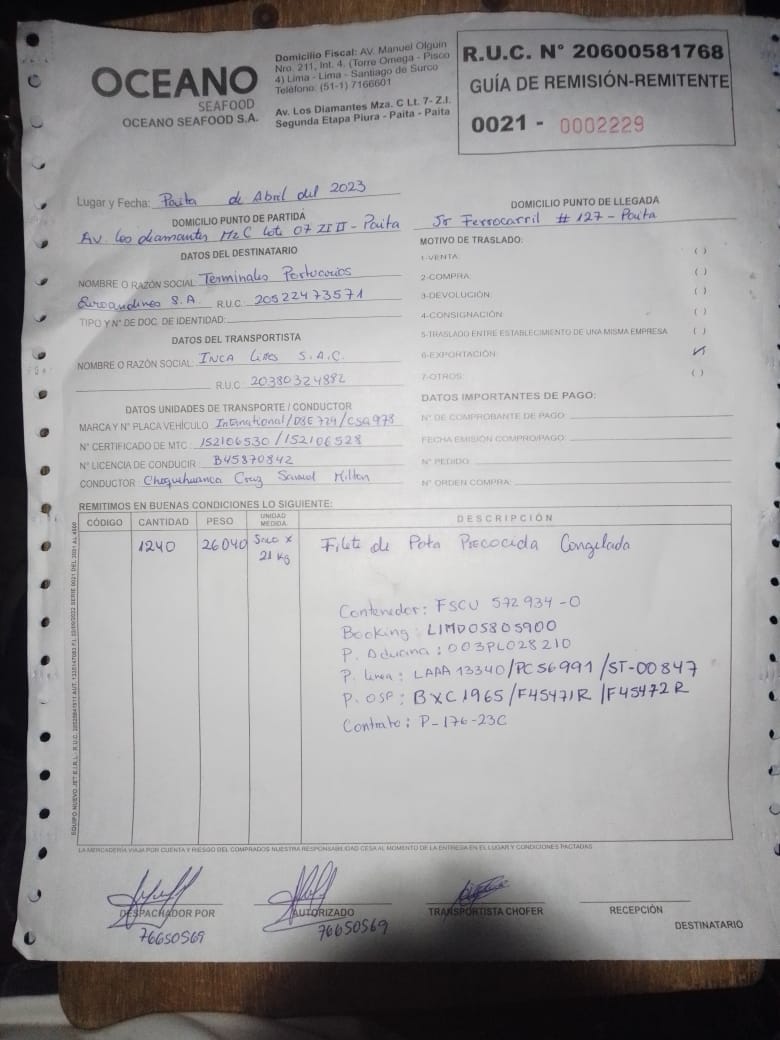 OCEANO
SEAFOOD
OCEANO SEAFOOD S.A.
Domicilio Fiscal: AV. Manuel Olguin
Nro. 211, Int. 4. (Torre Omega - Pisco
4) Lima - Lima - Santiago de Surco
Teléfono: (51-1) 7166601
Av. Los Diamantes Mza. C Lt. 7- Z.I.
Segunda Etapa Piura - Paita - Paita
R.U.C. N° 20600581768
GUÍA DE REMISIÓN-REMITENTE
0021 - 0002229
Lugar y Fecha: Paita de Abril del 2023
DOMICILIO PUNTO DE PARTIDA
Av. los diamantes Mz C lote 07 ZI II - Paita
DOMICILIO PUNTO DE LLEGADA
Jr Ferrocarril # 127 - Paita
DATOS DEL DESTINATARIO
NOMBRE O RAZÓN SOCIAL Terminales Portuarios
Euroandinos S.A. R.U.C. 20522473571
TIPO Y N° DE DOC. DE IDENTIDAD:
DATOS DEL TRANSPORTISTA
NOMBRE O RAZÓN SOCIAL: INCA Lines S.A.C.
R.U.C. 20380324882
DATOS UNIDADES DE TRANSPORTE / CONDUCTOR
MARCA Y N° PLACA VEHÍCULO International/D8E 724/CSA978
N° CERTIFICADO DE MTC : 152106530 /152106528
N° LICENCIA DE CONDUCIR : B45870842
CONDUCTOR : Choquehuanca Cruz Samuel Milton
MOTIVO DE TRASLADO:
1-VENTA: ( )
2-COMPRA: ( )
3-DEVOLUCIÓN: ( )
4-CONSIGNACIÓN: ( )
5-TRASLADO ENTRE ESTABLECIMIENTO DE UNA MISMA EMPRESA ( )
6-EXPORTACIÓN: (✓)
7-OTROS: ( )
DATOS IMPORTANTES DE PAGO:
N° DE COMPROBANTE DE PAGO:
FECHA EMISIÓN COMPRO/PAGO:
N° PEDIDO:
N° ORDEN COMPRA:
REMITIMOS EN BUENAS CONDICIONES LO SIGUIENTE:
CÓDIGO CANTIDAD PESO UNIDAD MEDIDA DESCRIPCIÓN
1240 26040 Saco x 21 kg Filete de Pota Precocida Congelada
Contenedor: FSCU 572 934 -0
Booking: LIMD05805900
P. Aduana: 003PL028210
P. Linea: LAAA 13340/PC56991/ST-00847
P. OSP: BXC1965/F45471R/F45472R
Contrato: P-176-23C
LA MERCADERÍA VIAJA POR CUENTA Y RIESGO DEL COMPRADOS NUESTRA RESPONSABILIDAD CESA AL MOMENTO DE LA ENTREGA EN EL LUGAR Y CONDICIONES PACTADAS
DESPACHADOR POR
76650569
AUTORIZADO
76650569
TRANSPORTISTA CHOFER
RECEPCIÓN
DESTINATARIO